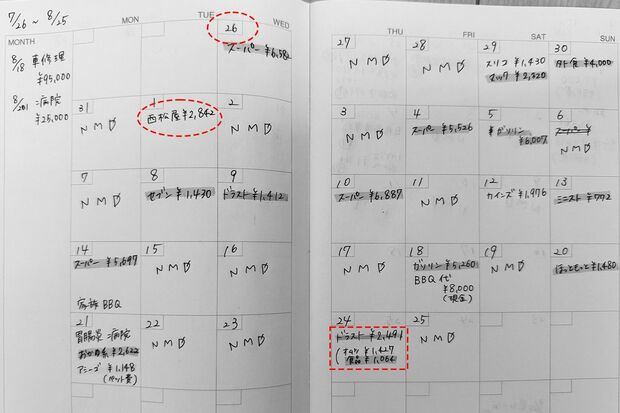 7/26 ~ 8/25
MONTH
MON
TUE
WED
THU
FRI
SAT
SUN
8/18 車修理
¥95,000
8/21 病院
¥25,000
26
スーパー ¥6,582
27
NMD
28
NMD
29
スリコ ¥1,430
マック ¥2,320
30
外食 ¥4,000
31
NMD
1
西松屋 ¥2,842
2
NMD
3
NMD
4
スーパー ¥5,526
5
ガソリン
¥6,007
6
スーパー ¥
NMD
7
NMD
8
セブン ¥1,430
9
ドラスト ¥1,412
10
スーパー ¥6,887
11
NMD
12
カインズ ¥1,976
13
ミニスト ¥772
14
スーパー ¥5,697
家族BBQ
15
NMD
16
NMD
17
NMD
18
ガソリン ¥5,260
BBQ代
¥8,000
(現金)
19
NMD
20
ほっともっと ¥1,480
21
胃腸炎:病院
おかゆ系 ¥2,622
アシーズ ¥1,148
(ペット費)
22
NMD
23
NMD
24
ドラスト ¥2,491
オムツ ¥1,427
食品 ¥1,064
25
NMD